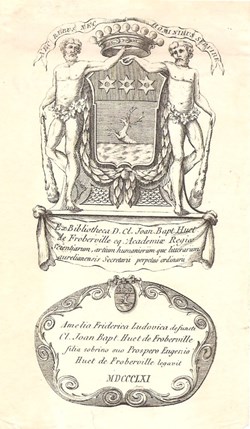 Ex Bibliotheca D. Cl. Joan. Bapt. Huet
de Froberville eq. Academiæ Regiæ
Scientiarum, artium humaniorum que litterarum
aurelianensis Secretarii perpetui ordinarii
Amelia Friderica Ludovica defuncti
Cl. Joan Bapt. Huet de Froberville
filia sobrino suo Prospero Eugenio
Huet de Froberville legavit
MDCCCLXI